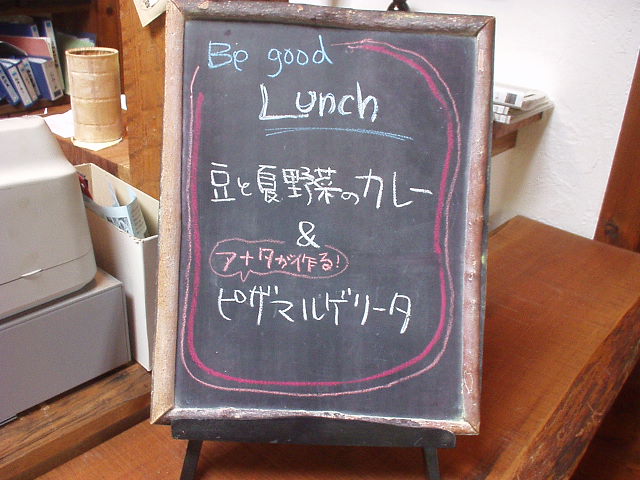 Be good
Lunch
豆と夏野菜のカレー
&
アナタが作る!
ピザマルゲリータ